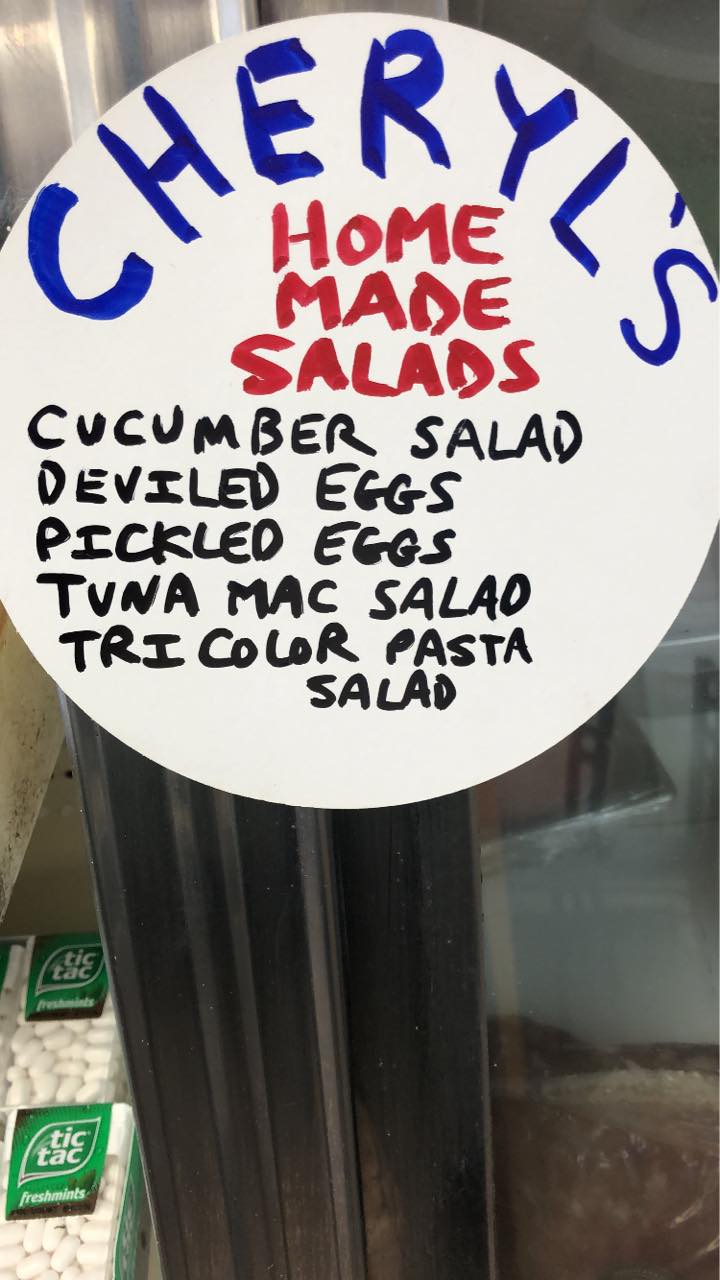 CHERYL'S
HOME
MADE
SALADS
CUCUMBER SALAD
DEVILED EGGS
PICKLED EGGS
TUNA MAC SALAD
TRI COLOR PASTA
SALAD
tic
tac
freshmints
tic
tac
freshmints